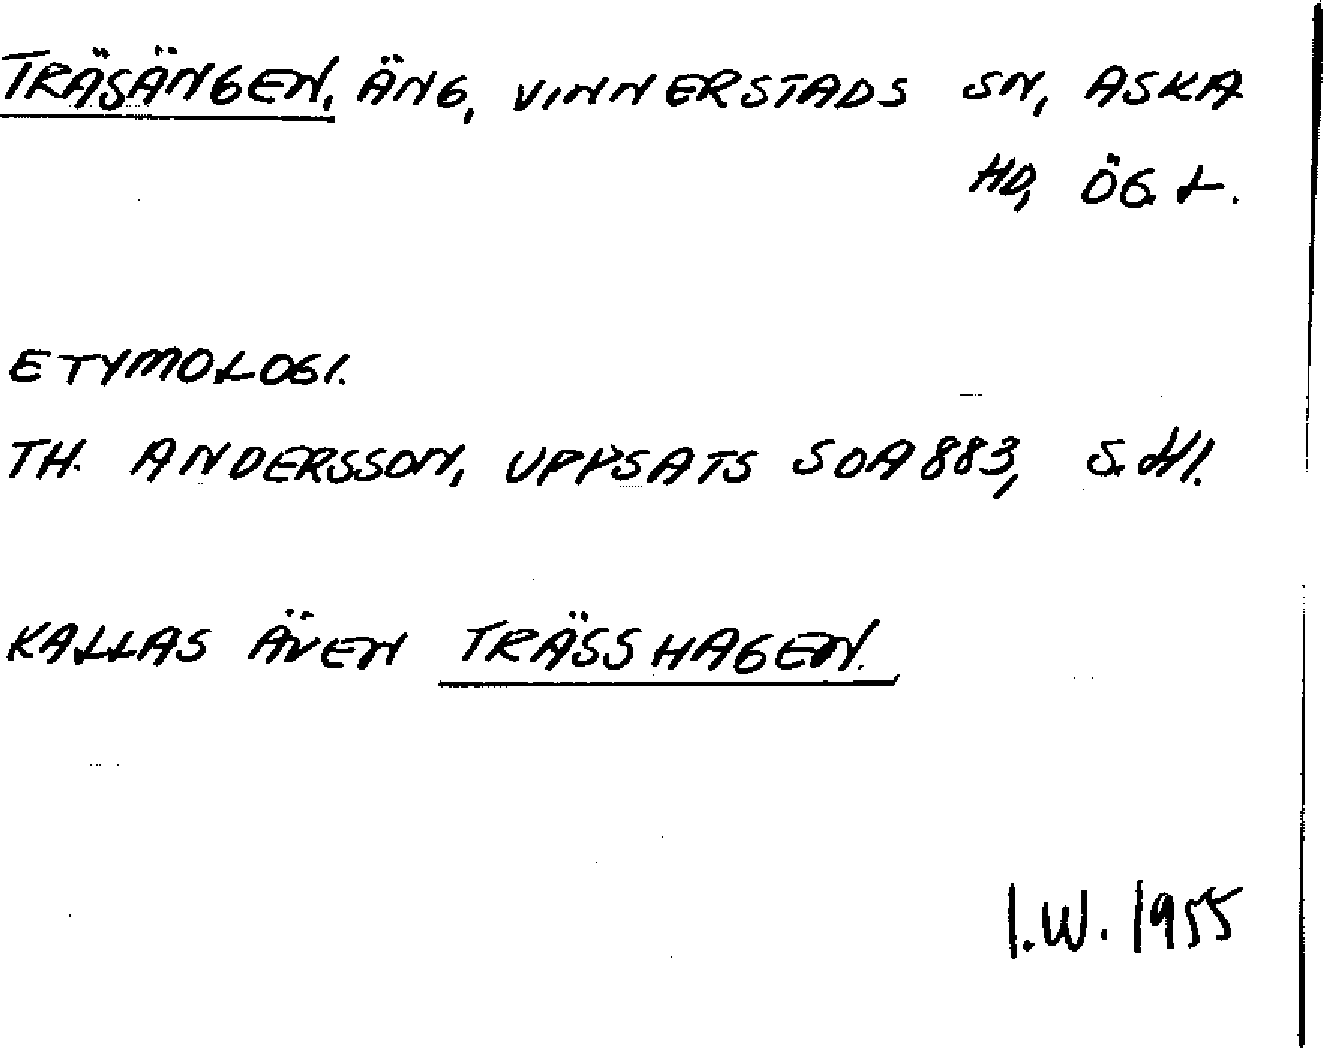 TRÄSÄNGEN, ÄNG, VINNERSTADS SN, ASKA
HD, ÖG. L.
ETYMOLOGI.
TH. ANDERSSON, UPPSATS SOA 883, S. 41.
KALLAS ÄVEN TRÄSSHAGEN.
I.W. 1955